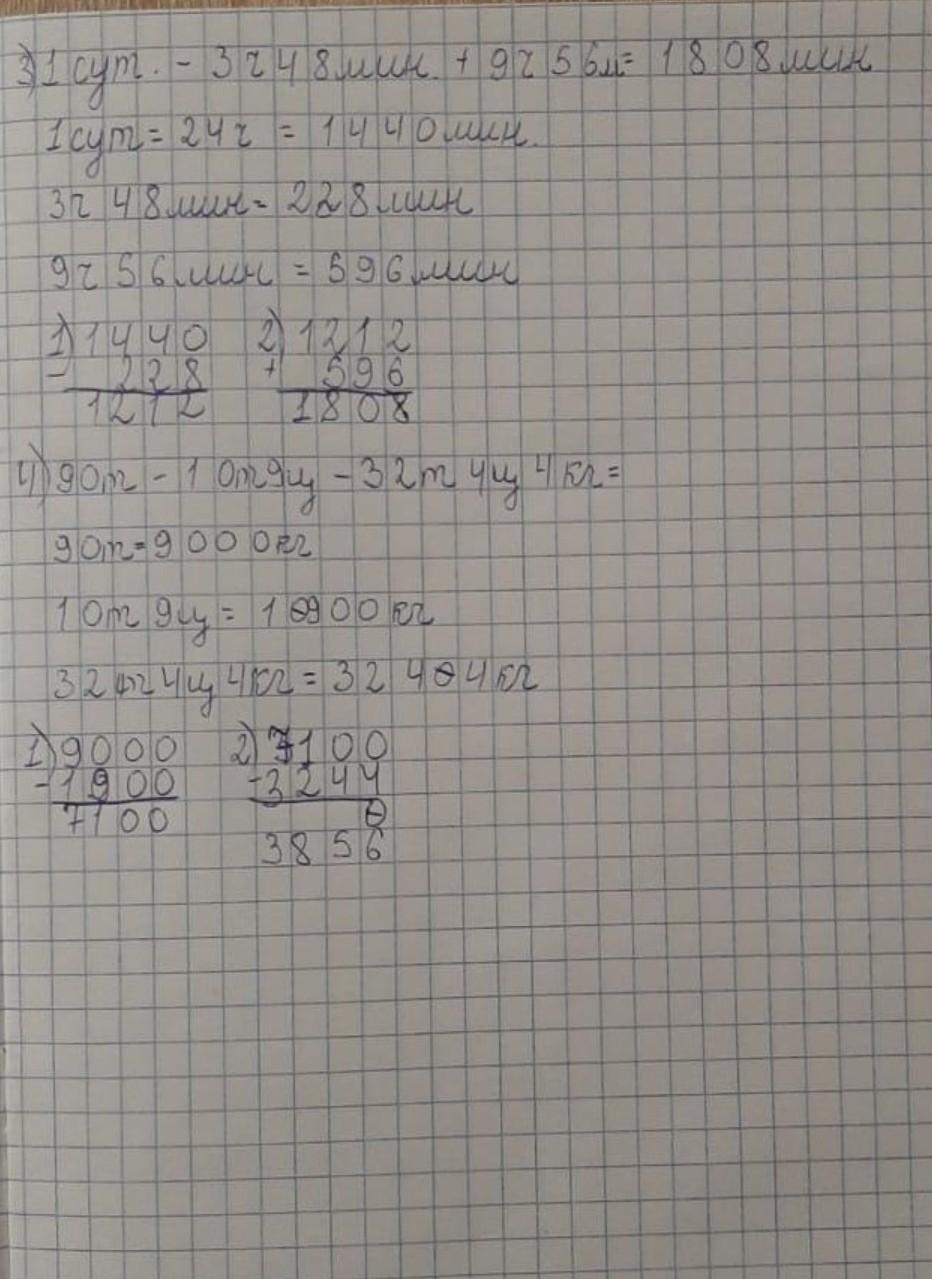 3) 1 сут. - 3 ч 48 мин. + 9 ч 56 м = 1808 мин
1 сут = 24 ч = 1440 мин.
3 ч 48 мин = 228 мин
9 ч 56 мин = 596 мин
1) 1440 2) 1212
- 228 + 596
1212 1808
4) 90 т - 10 т 9 ц - 32 т 4 ц 4 кг =
90 т = 90000 кг
10 т 9 ц = 10900 кг
32 т 4 ц 4 кг = 32404 кг
1) 9000 2) 7100
- 1900 - 3244
7100 0
3856